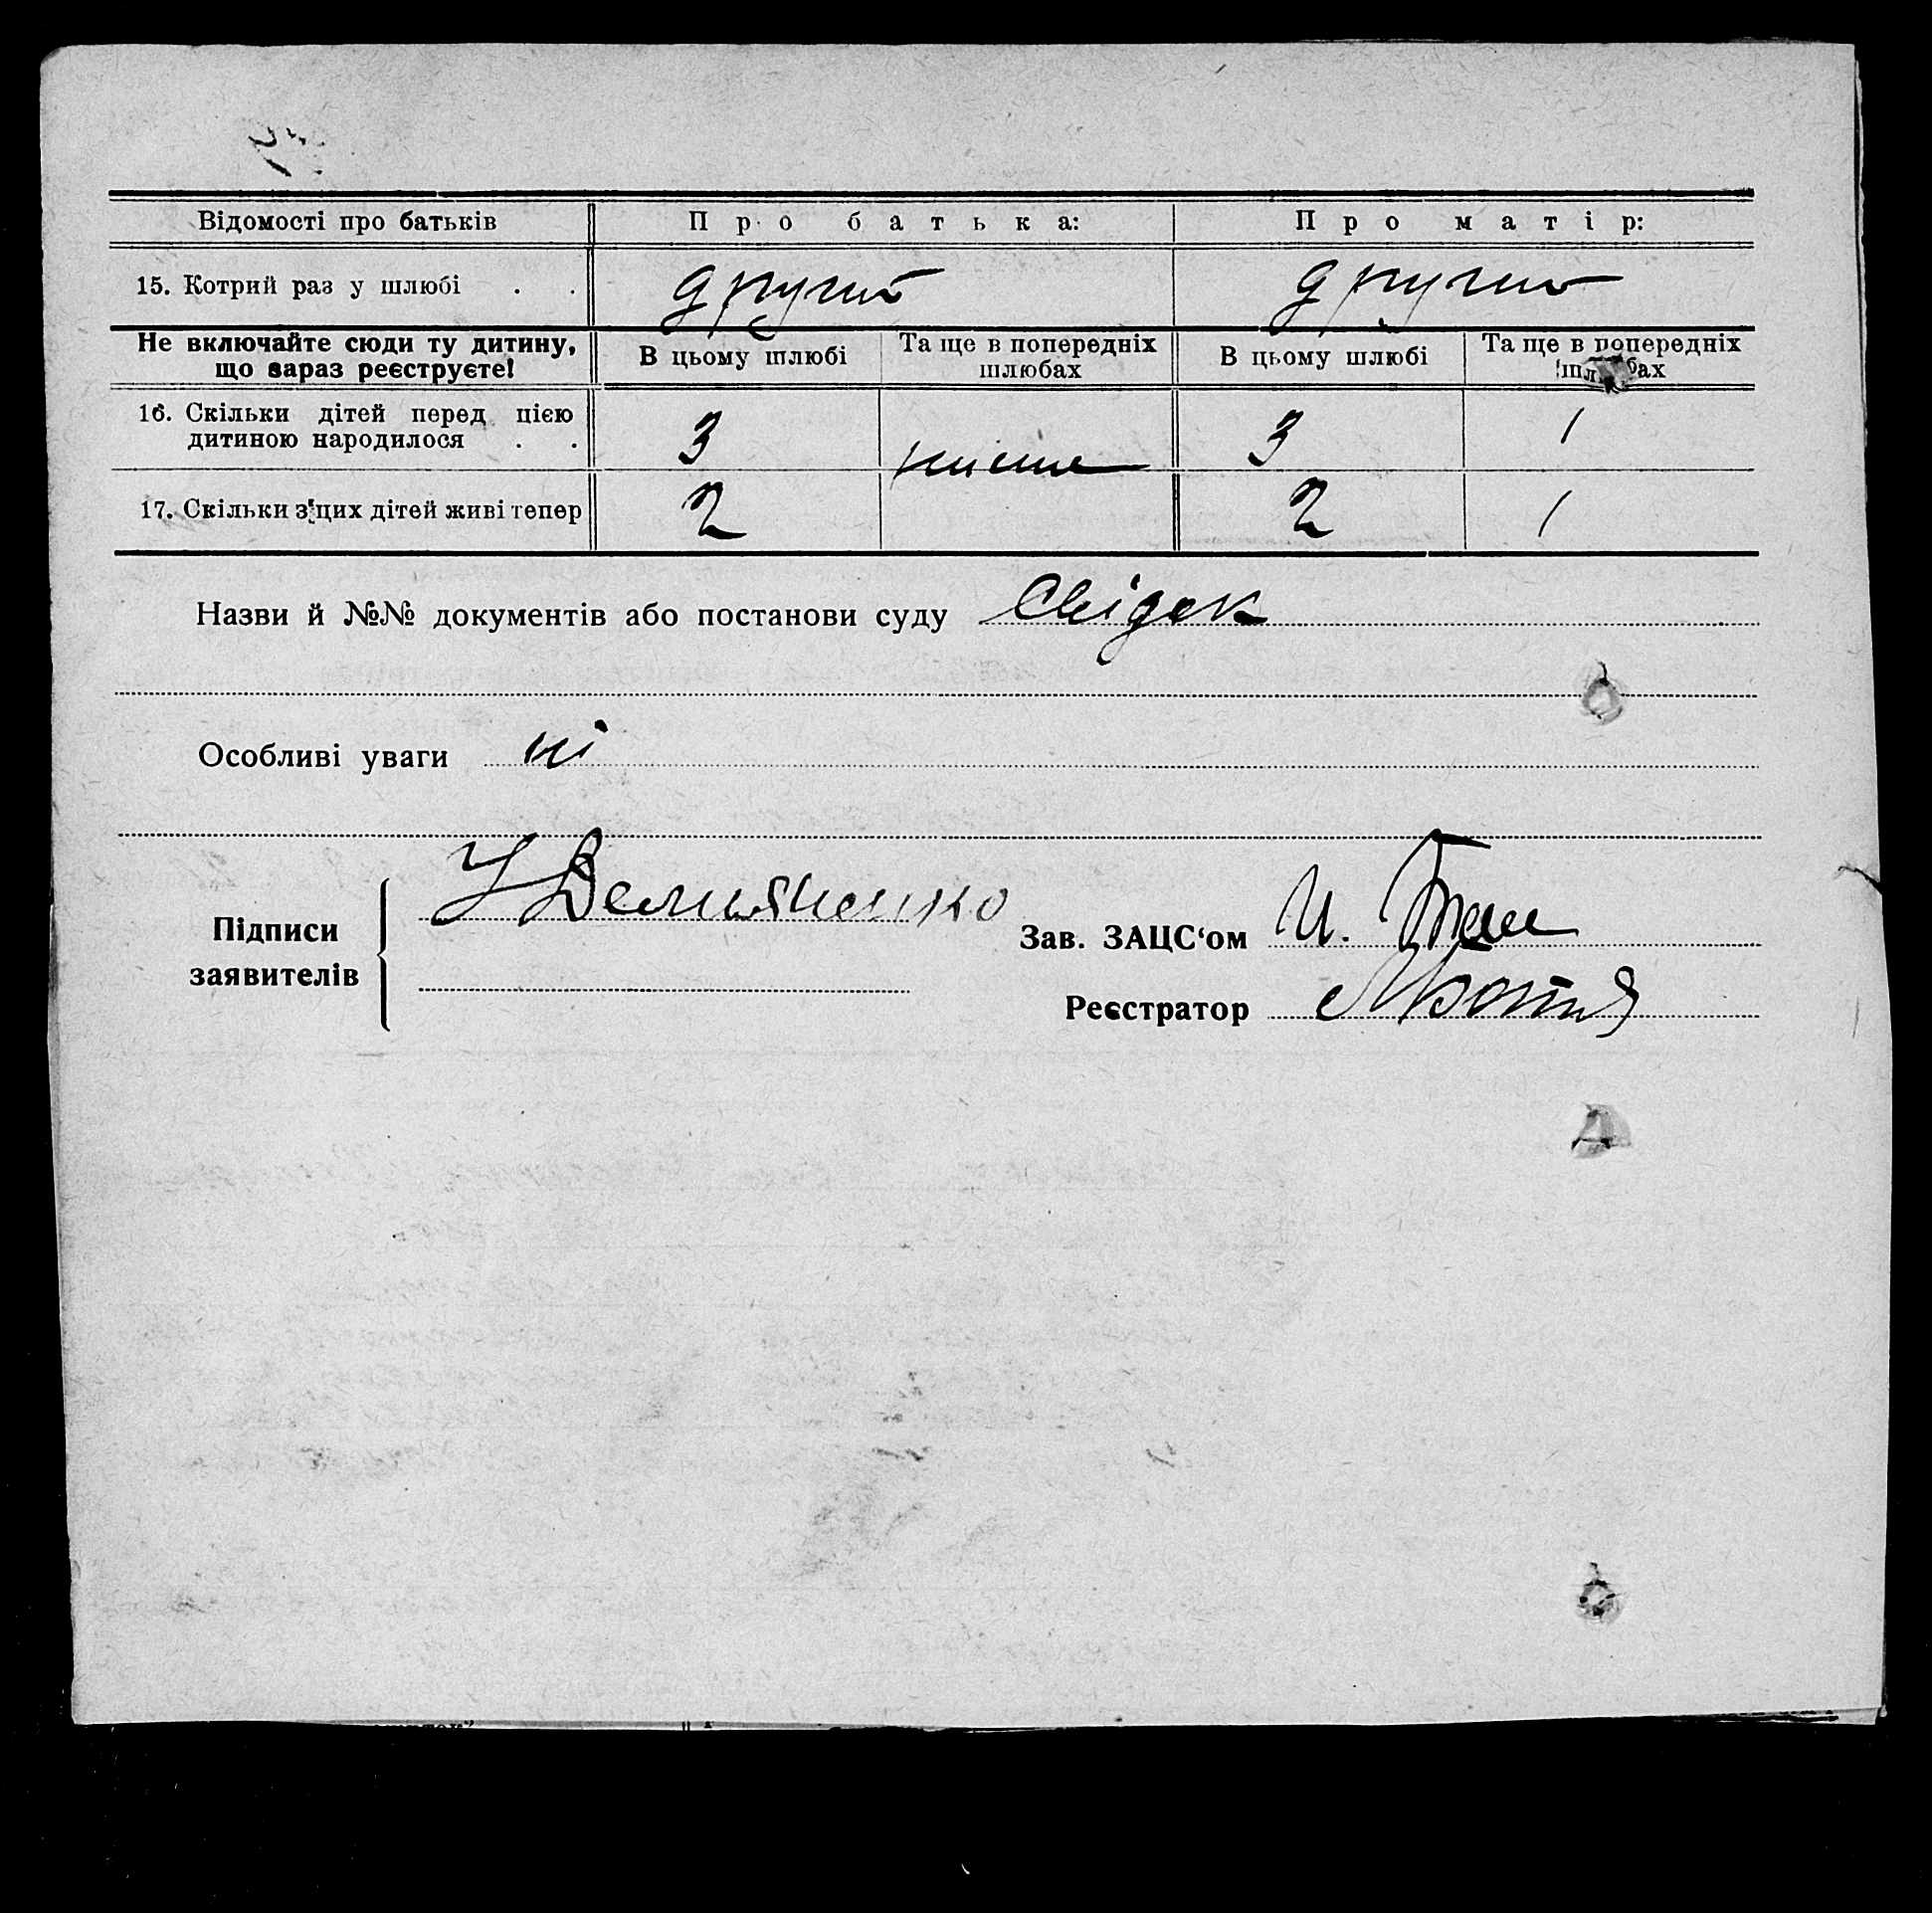 Відомості про батьків П р о б а т ь к а: П р о м а т і р:
15. Котрий раз у шлюбі . . другий другий
Не включайте сюди ту дитину, що зараз реєструєте! В цьому шлюбі Та ще в попередніх шлюбах В цьому шлюбі Та ще в попередніх шлюбах
16. Скільки дітей перед цією
дитиною народилося . . 3 3 1
17. Скільки з цих дітей живі тепер 2 2 1
Назви й №№ документів або постанови суду Свідок
Особливі уваги ні
Підписи
заявителів
Зав. ЗАЦС‘ом И.
Реєстратор